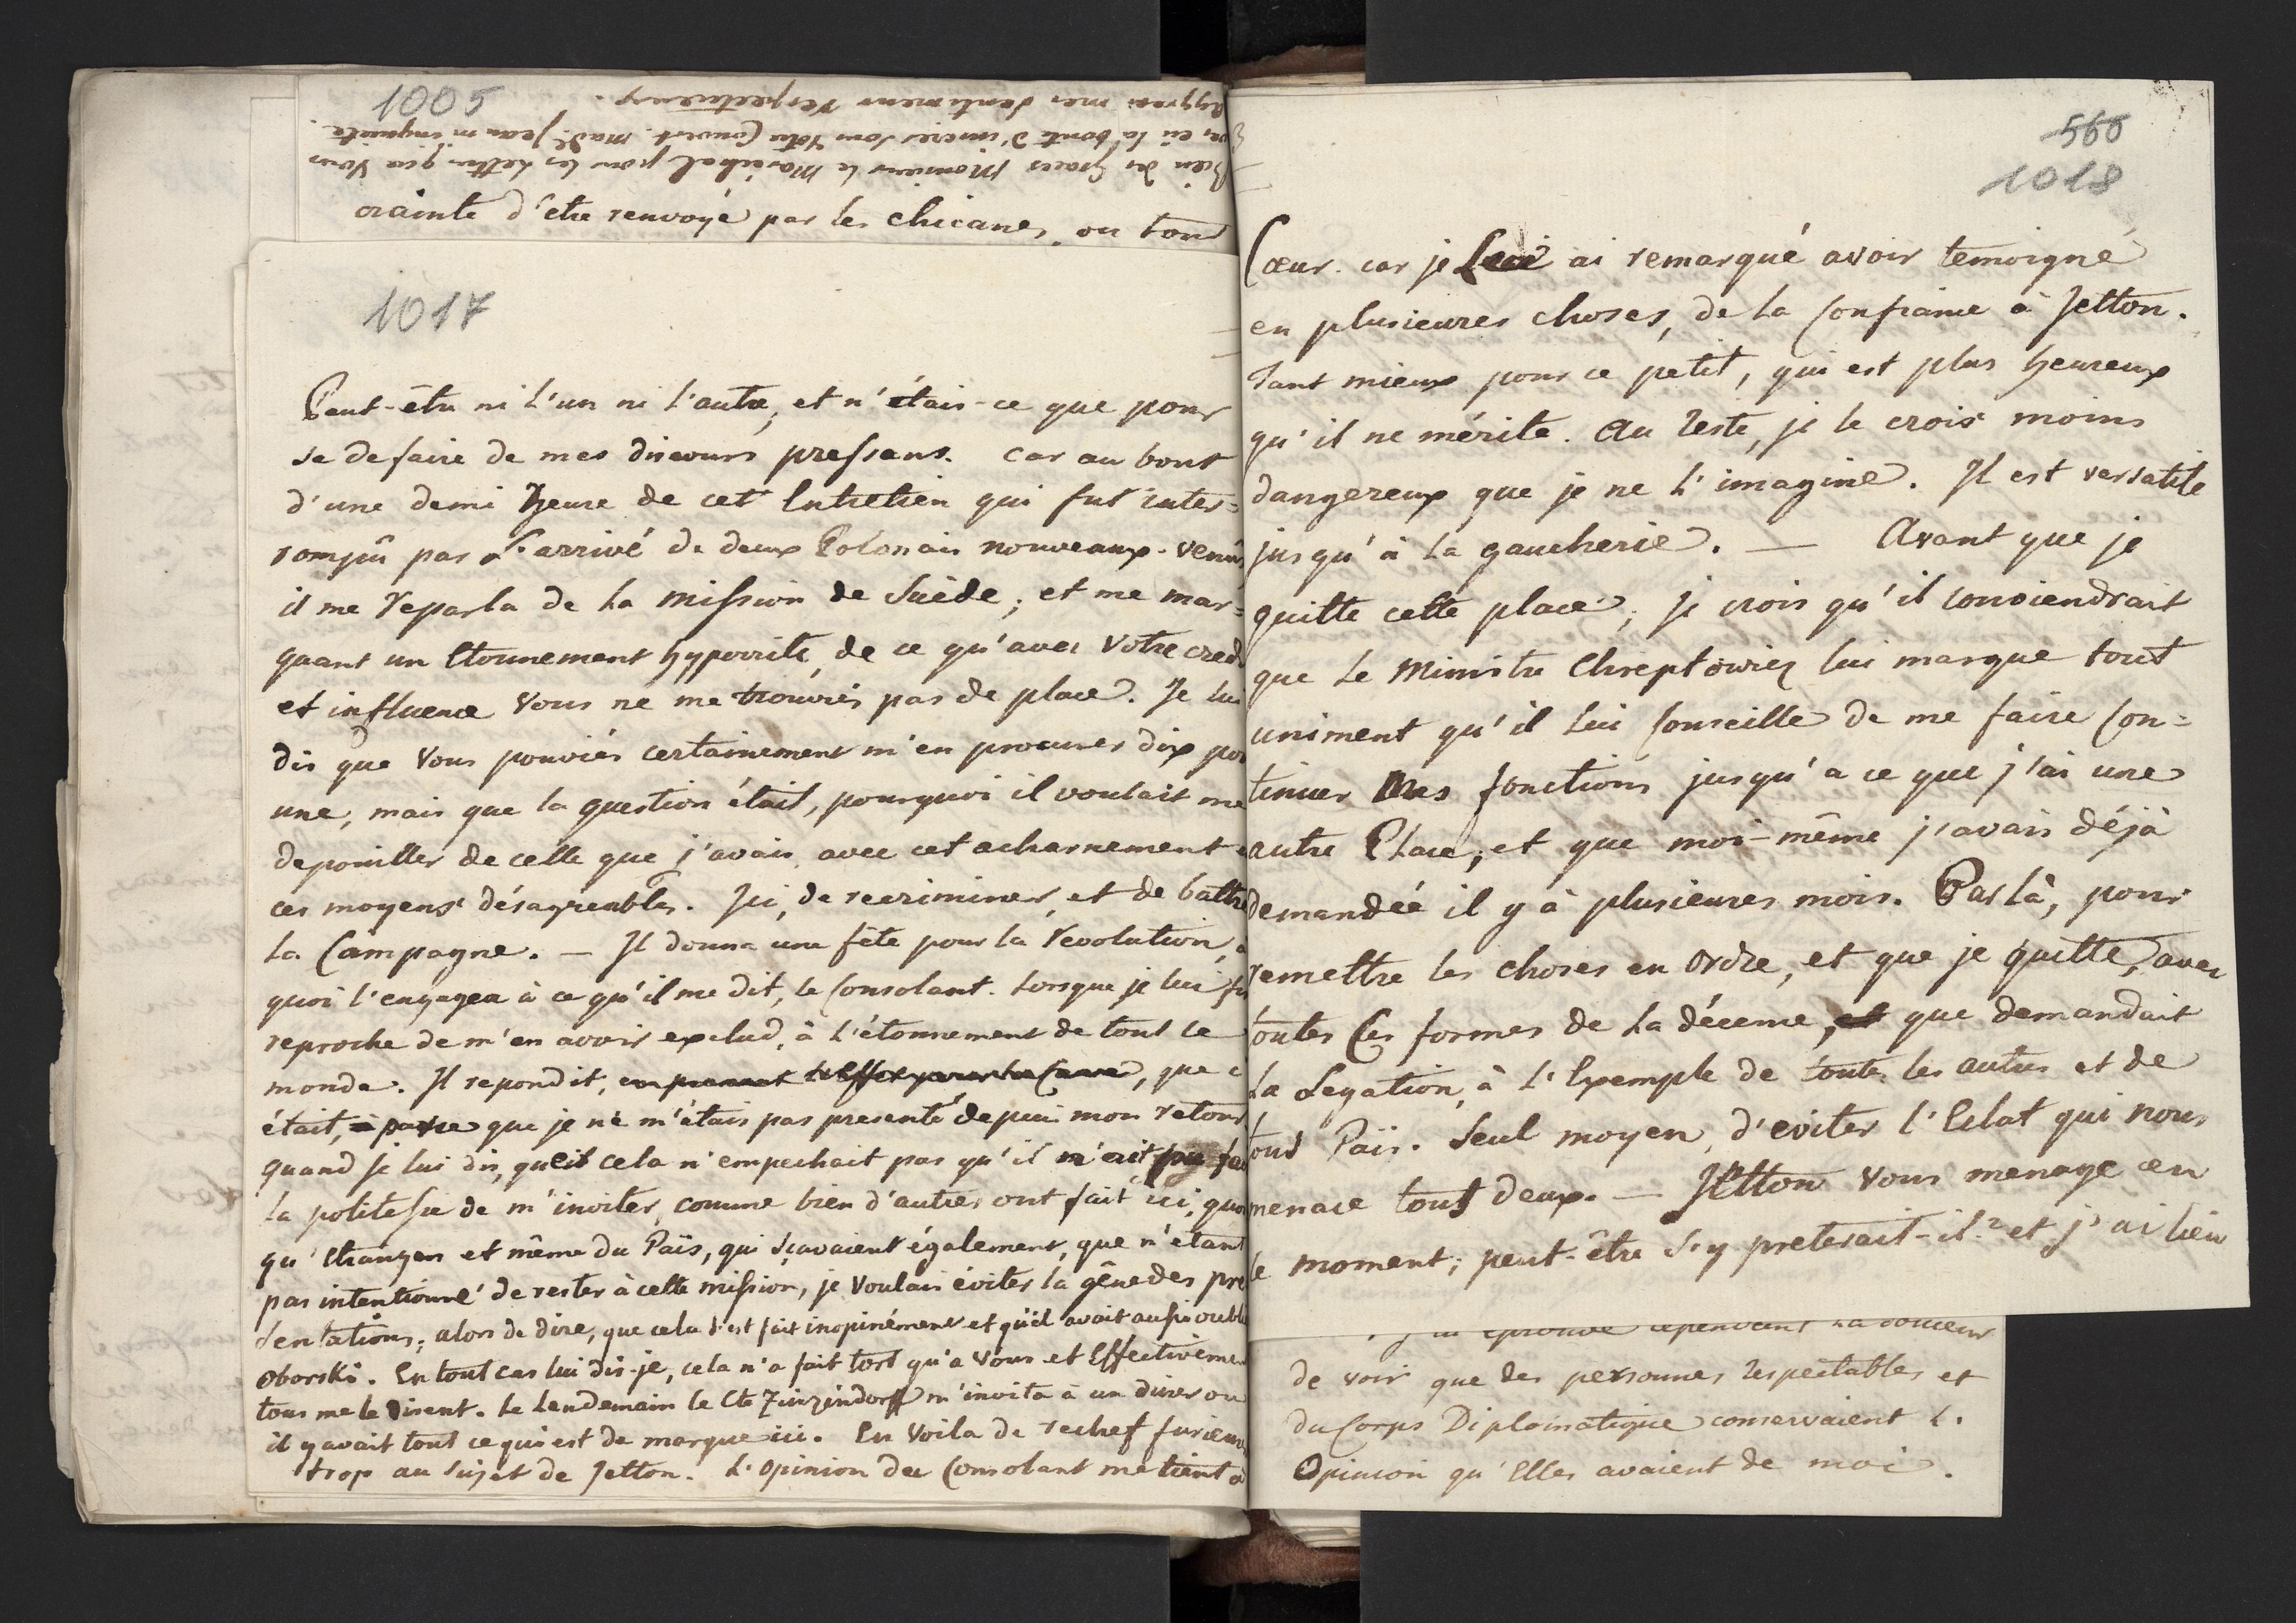 1005
aggreer mes sentimens respectueux.
eu la bonté d'inserer sous Votre Couvert. Made Jean m'inquiete.
Bien des Graces Monsieur le Maréchal pour les Lettres que Vous
crainte d'etre renvoyé par les chicanes, ou tout
1017
Peut-être ni l'un ni l'autre, et n'étais-ce que pour
se defaire de mes discours pressans. Car au bout
d'une demi heure de cet Entretien qui fut inter=
rompû par l'arrivé de deux Polonais nouveaux-venus
il me reparla de la mission de Suède; et me mar=
quant un Etonnement hypocrite, de ce qu'avec Votre cred
et influence Vous ne me trouviés pas de place. Je lui
dis que Vous pouviés certainement m'en procurer dix po
une, mais que la question était, pourquoi il voulait me
depouiller de celle que j'avais, avec cet acharnement
ces moyens désagreables. Ici, de recriminer, et de battre
la Campagne. — Il donna une fête pour la revolution, à
quoi l'engagea à ce qu'il me dit, le Consolant. Lorsque je lui fis
reproche de m'en avoir exclud, à l'étonnement de tout le
monde. Il repondit, en prenant l'effet pour la Cause, que c
était, parce que je ne m'étais pas presenté depuis mon retour
quand je lui dis, que cela n'empechait pas qu'il m'eut pu fai
la politesse de m'inviter, comme bien d'autres ont fait ici, quoi
qu'Etrangers et même du Païs, qui sçavaient également, que n'étant
pas intentionné de rester à cette mission, je Voulais éviter la gêne des pre
sentations; alors de dire, que cela s'est fait inopinément et qu'il avait aussi oublié
Oborski. En tout cas lui dis-je, cela n'a fait tort qu'a Vous et Effectivemen
tous me le disent. Le Lendemain le Cte Zinzendorff m'invita à un diner ou
il y avait tout ce qui est de marque ici. En Voila de rechef furieux
trop au sujet de Jetton. L'opinion du Consolant me tient a
560
1018
Cœur. car je Lui ai remarqué avoir temoigné
en plusieures choses, de la Confiance à Jetton.
Tant mieux pour ce petit, qui est plus heureux
qu'il ne mérite. Au reste, je le crois moins
dangereux que je ne l'imagine. Il est versatile
jusqu'à la gaucherie. — Avant que je
quitte cette place; je crois qu'il conviendrait
que le Ministre Chreptowicz lui marque tout
uniment qu'il lui Conseille de me faire Con=
tinuer Mes fonctions jusqu'a ce que j'ai une
autre Place; et que moi-même j'avais déjà
demandée il y à plusieures mois. Par là, pour
remettre les choses en ordre, et que je quitte, avec
toutes les formes de la décence, que demandait
la Legation, à l'Exemple de toute les autres et de
tout Païs. Seul moyen, d'eviter l'Eclat qui nous
menace tous deux. — Jetton Vous menage en
le moment; peut-être s'y preterait-il? et j'ai lieu
eprouvé cependant la douceur
de voir que des personnes respectables et
du Corps Diplomatique conservaient l.
Opinion qu'Elles avaient de moi.